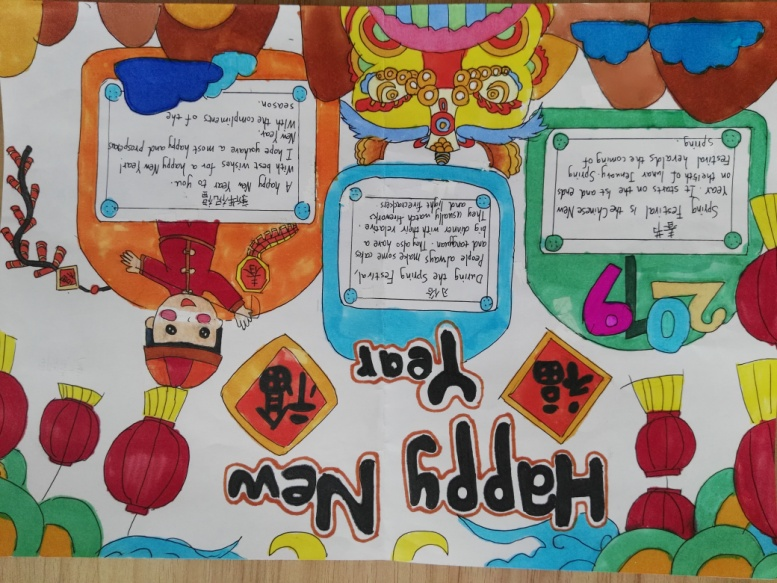 Happy New
Year
福
福
2019
春节
Spring Festival is the Chinese New
Year. It starts on the 1st and ends
on the 15th of lunar Jenaury. Spring
Festival heralds the coming of
spring.
习俗
During the Spring Festival
People always make some cakes
and tangyuan. They also have a
big dinner with their relative.
They usually watch fireworks
and light firecrackers
春
新年祝福
A happy New Year to you.
With best wishes for a happy New Year!
I hope you have a most happy and prosperous
New Year.
With the compliments of the
season.